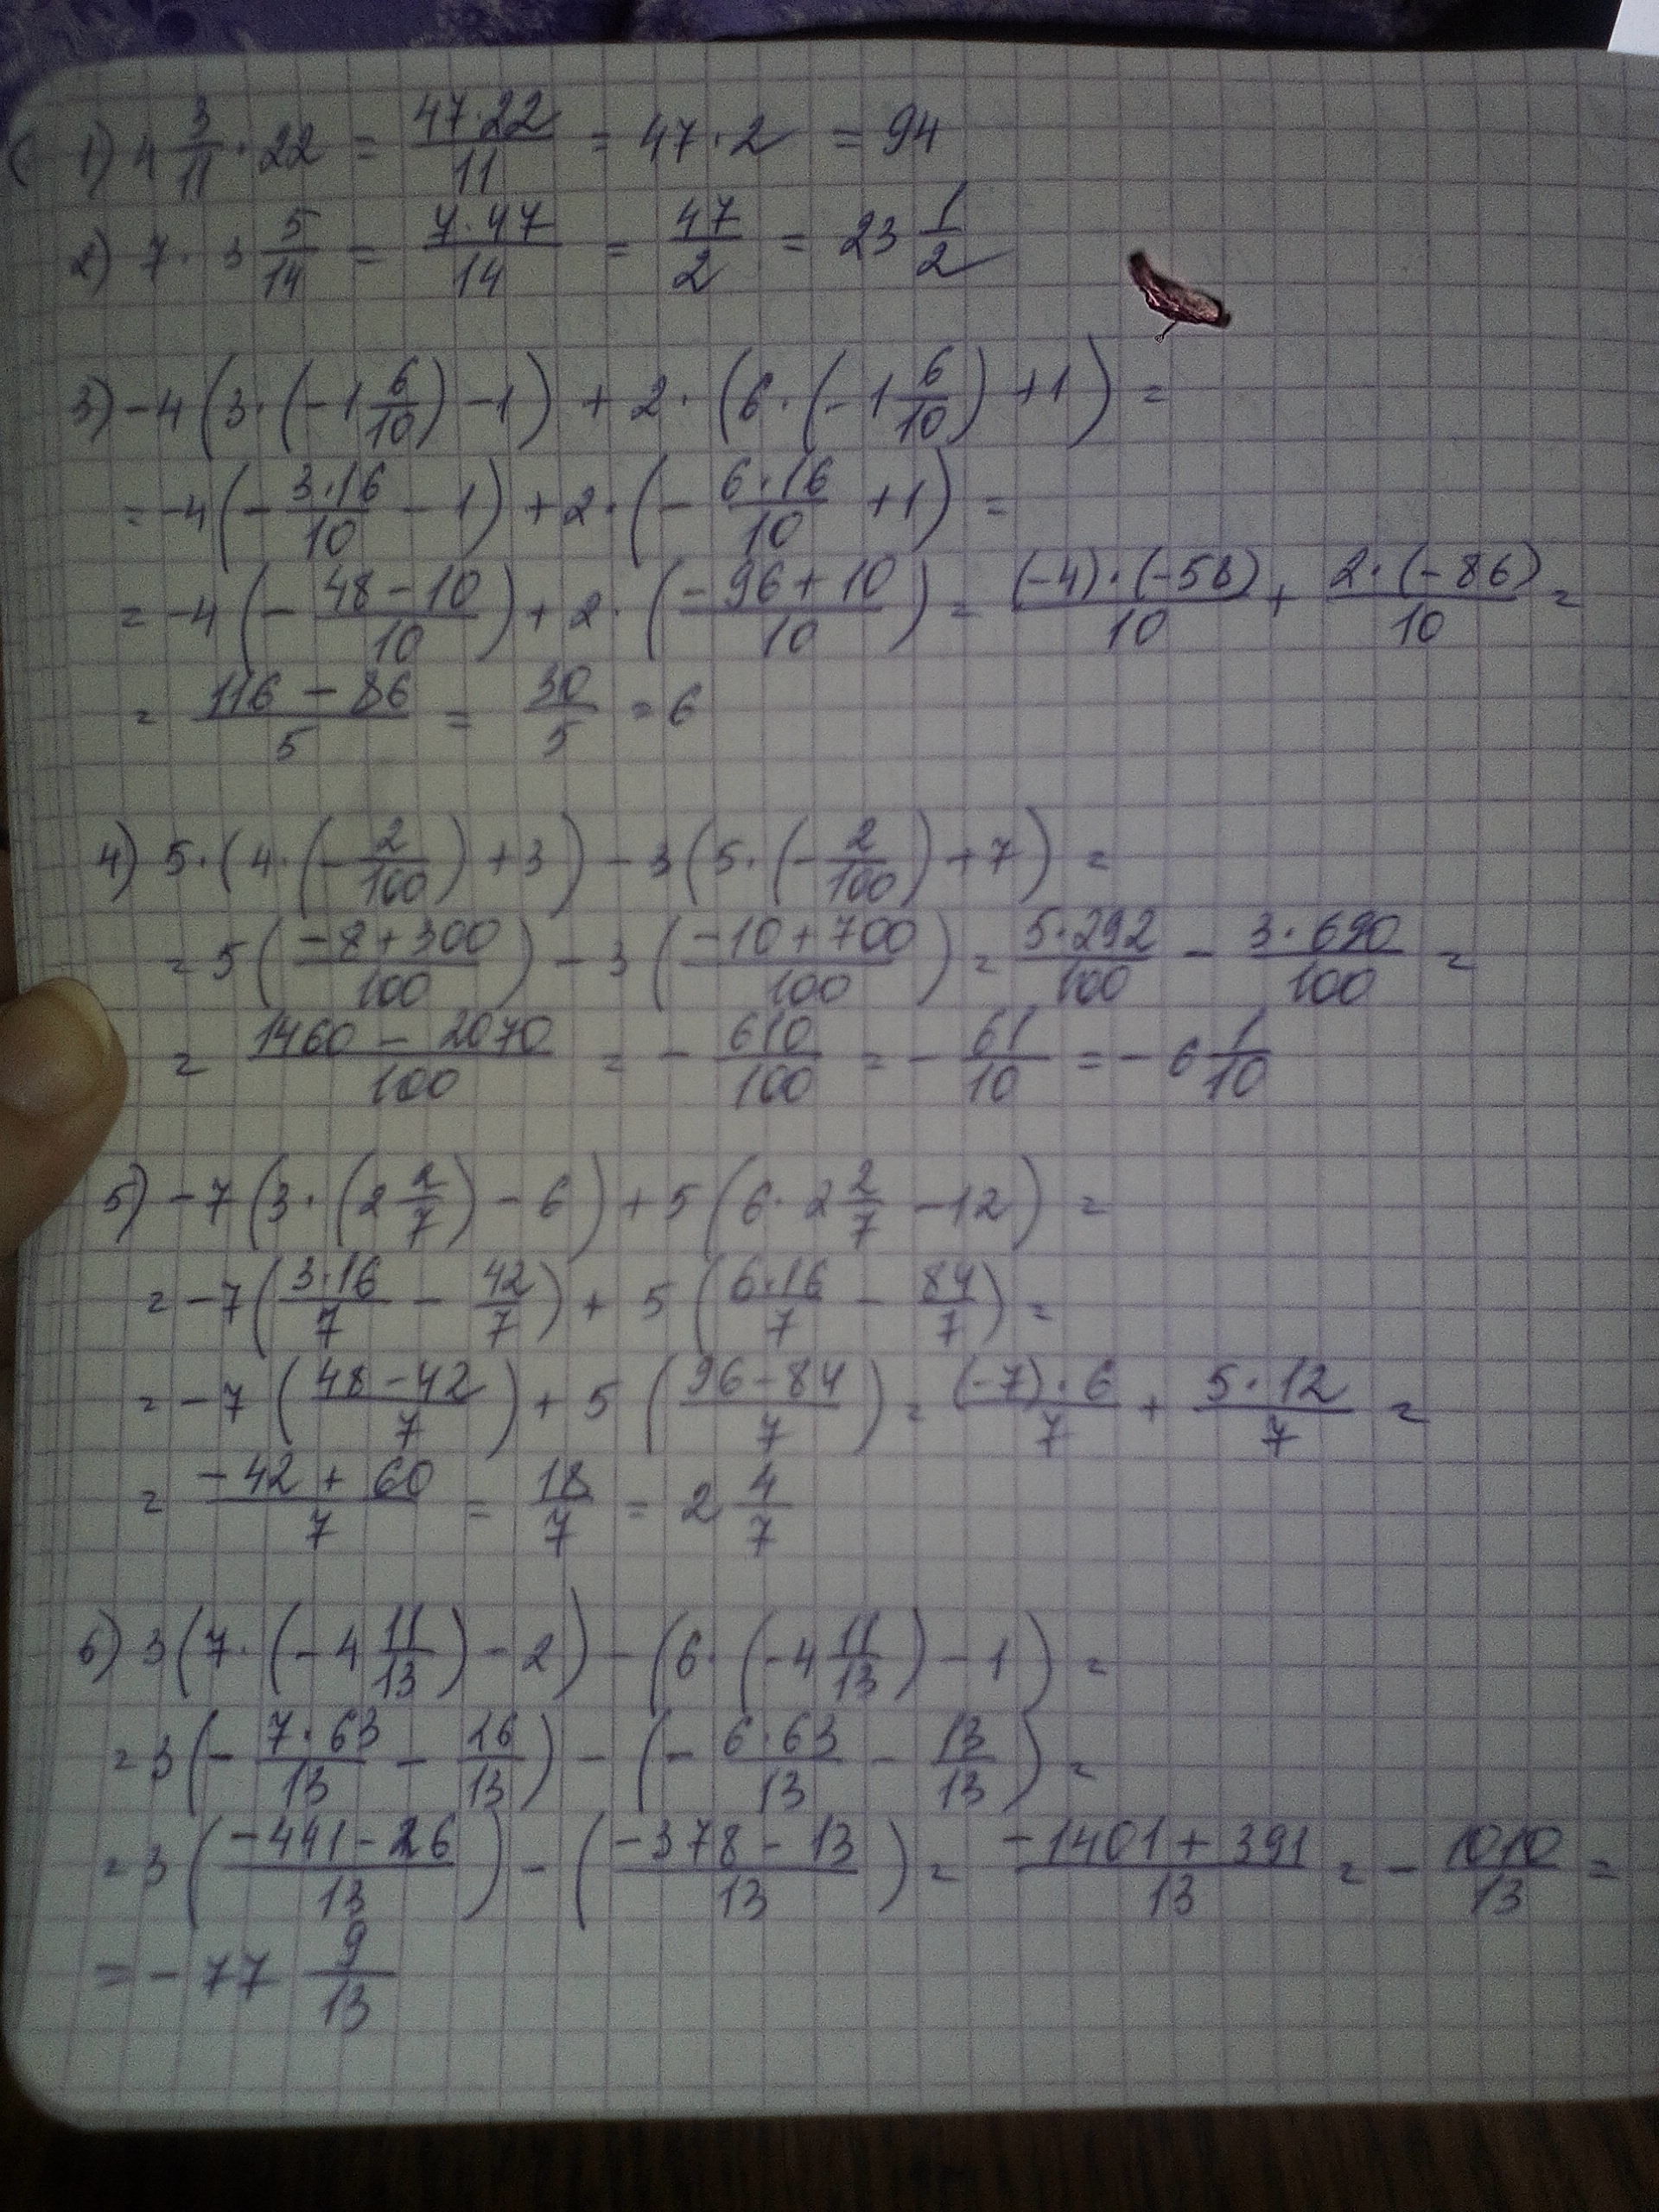 1) 4 3/11 · 22 = 47·22/11 = 47·2 = 94
2) 7 · 3 5/14 = 7·47/14 = 47/2 = 23 1/2
3) -4(3·(-1 6/10) -1) + 2·(6·(-1 6/10) +1) =
= -4(- 3·16/10 - 1) + 2·(- 6·16/10 +1) =
= -4(- 48-10/10) + 2·(-96+10/10) = (-4)·(-58)/10 + 2·(-86)/10 =
= 116-86/5 = 30/5 = 6
4) 5·(4·(- 2/100) +3) - 3(5·(- 2/100) +7) =
= 5(-8+300/100) - 3(-10+700/100) = 5·292/100 - 3·690/100 =
= 1460-2070/100 = - 610/100 = - 61/10 = - 6 1/10
5) -7(3·(2 2/7) - 6) + 5(6·2 2/7 - 12) =
= -7(3·16/7 - 42/7) + 5(6·16/7 - 84/7) =
= -7(48-42/7) + 5(96-84/7) = (-7)·6/7 + 5·12/7 =
= -42+60/7 = 18/7 = 2 4/7
6) 3(7·(-4 11/13) - 2) - (6·(-4 11/13) - 1) =
= 3(- 7·63/13 - 26/13) - (- 6·63/13 - 13/13) =
= 3(-441-26/13) - (-378-13/13) = -1401+391/13 = - 1010/13 =
= - 77 9/13